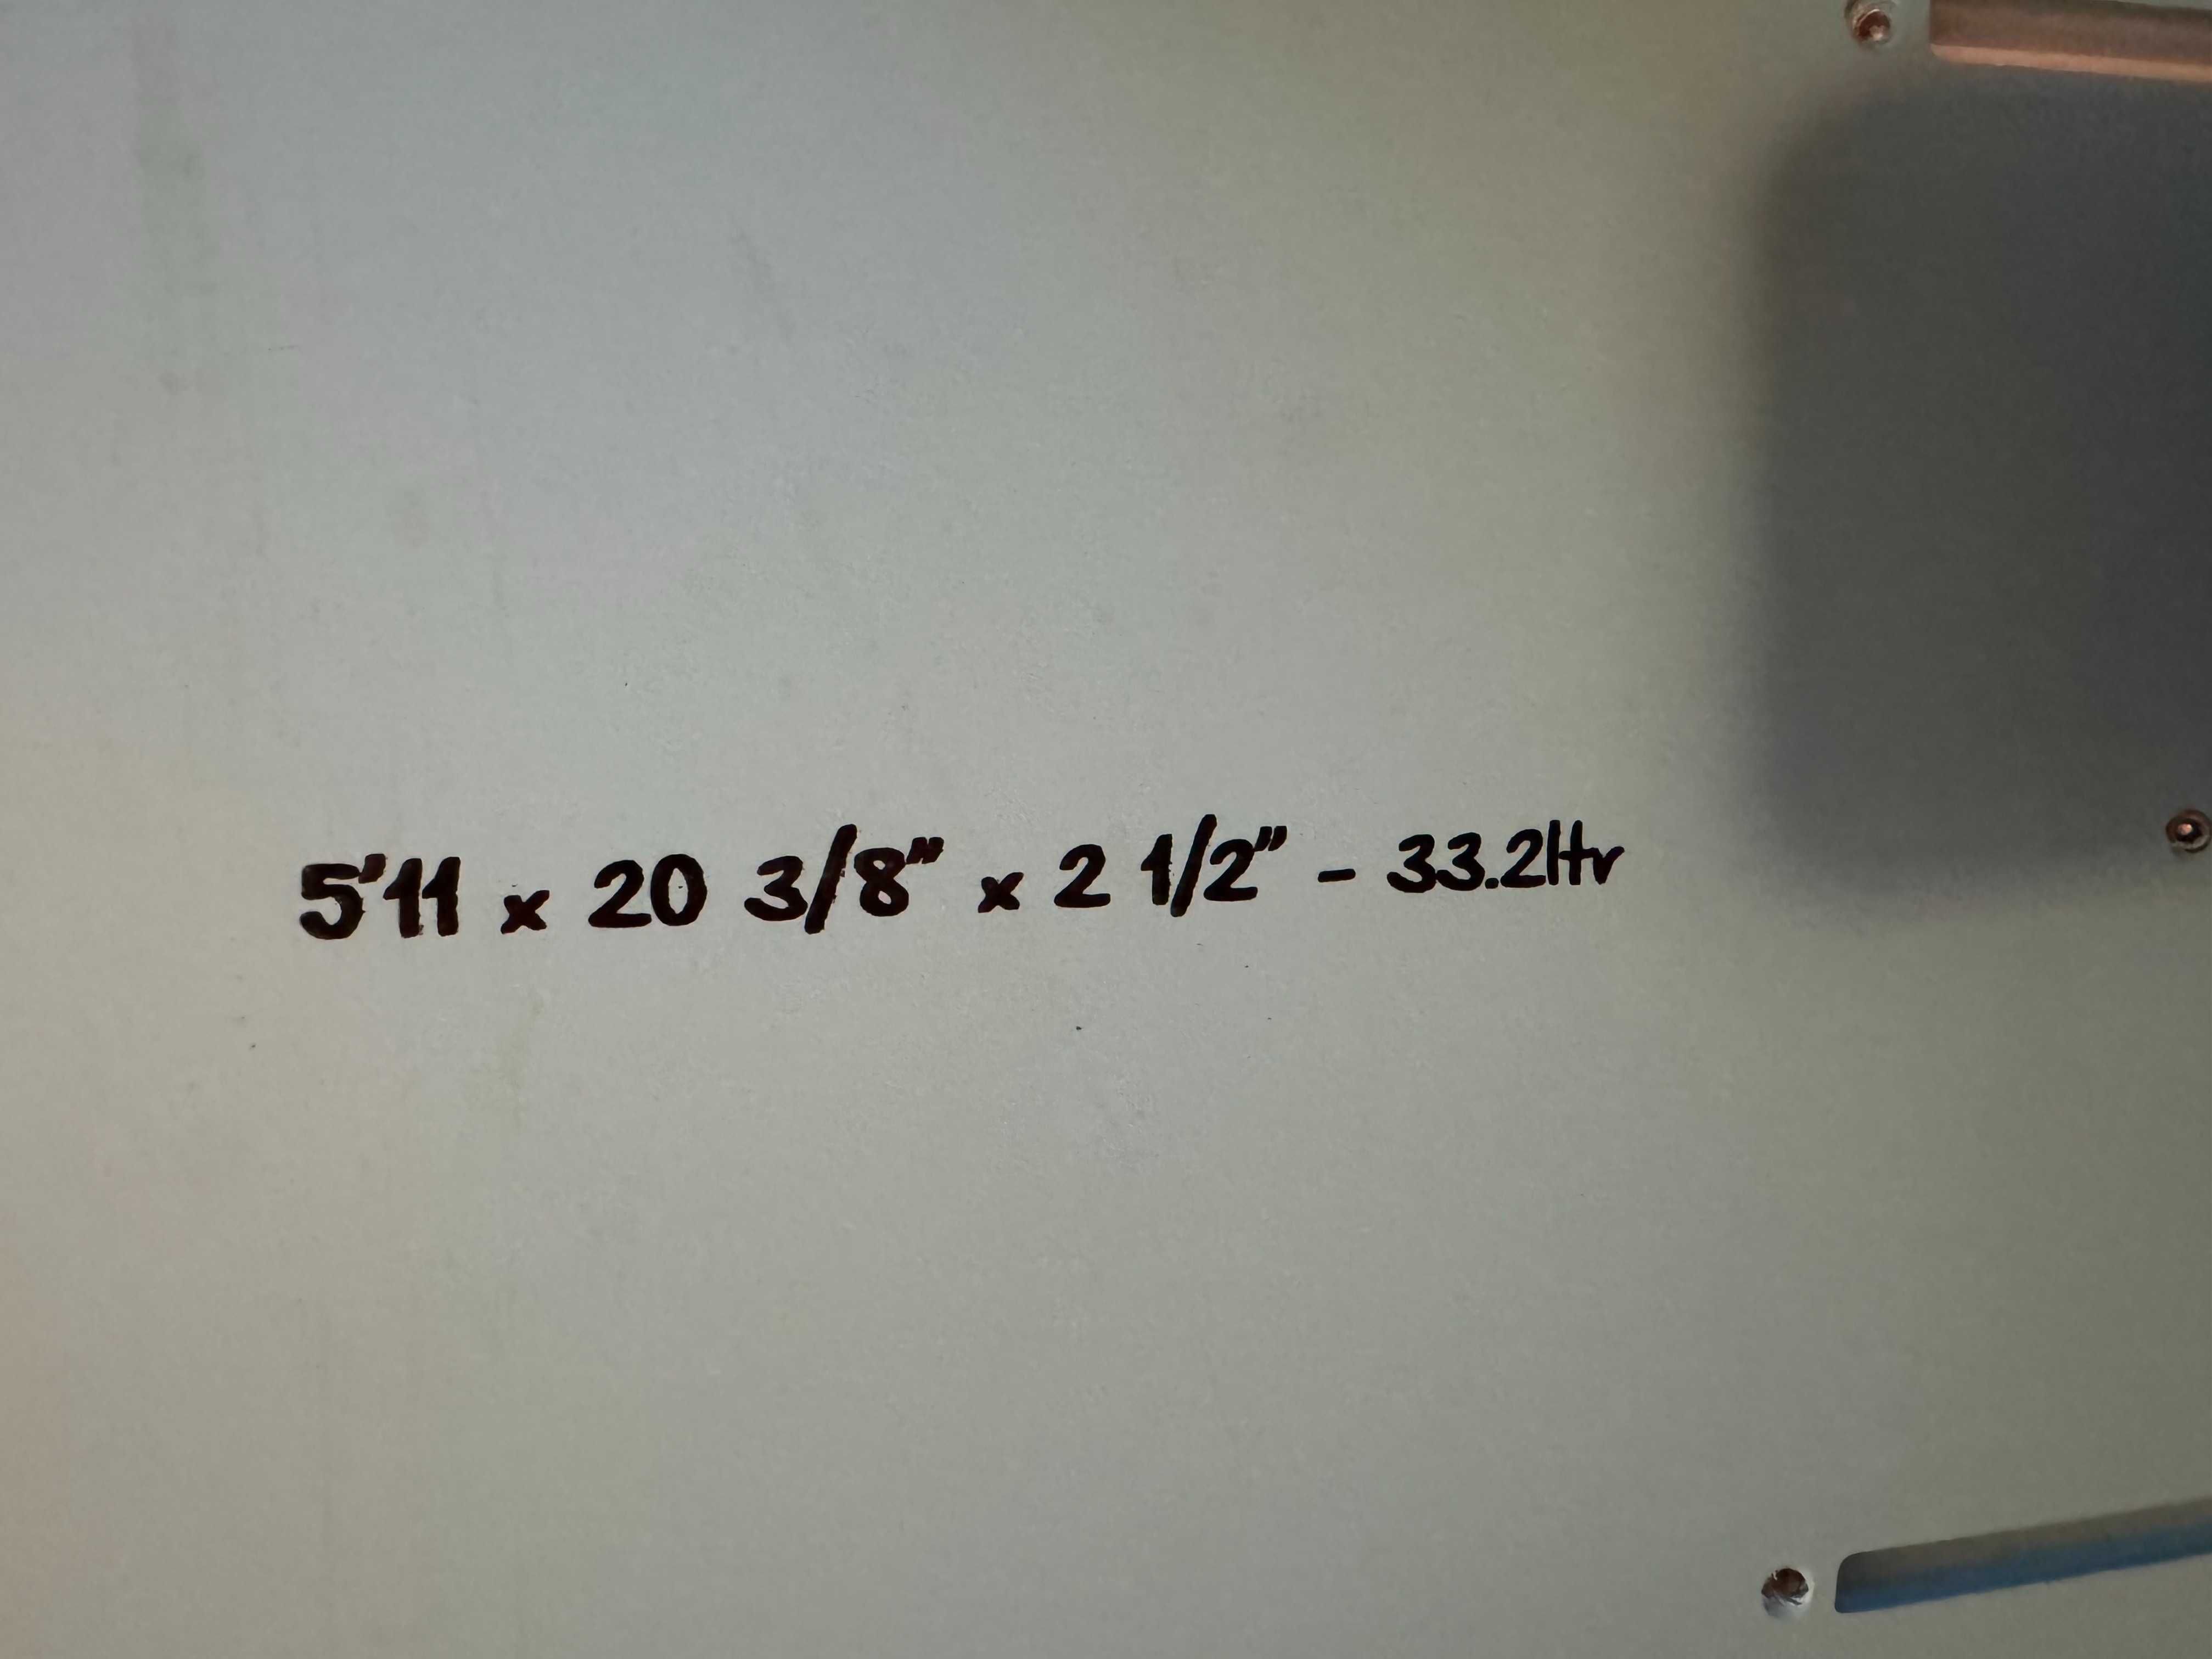 5'11 x 20 3/8" x 2 1/2" - 33.2ltr